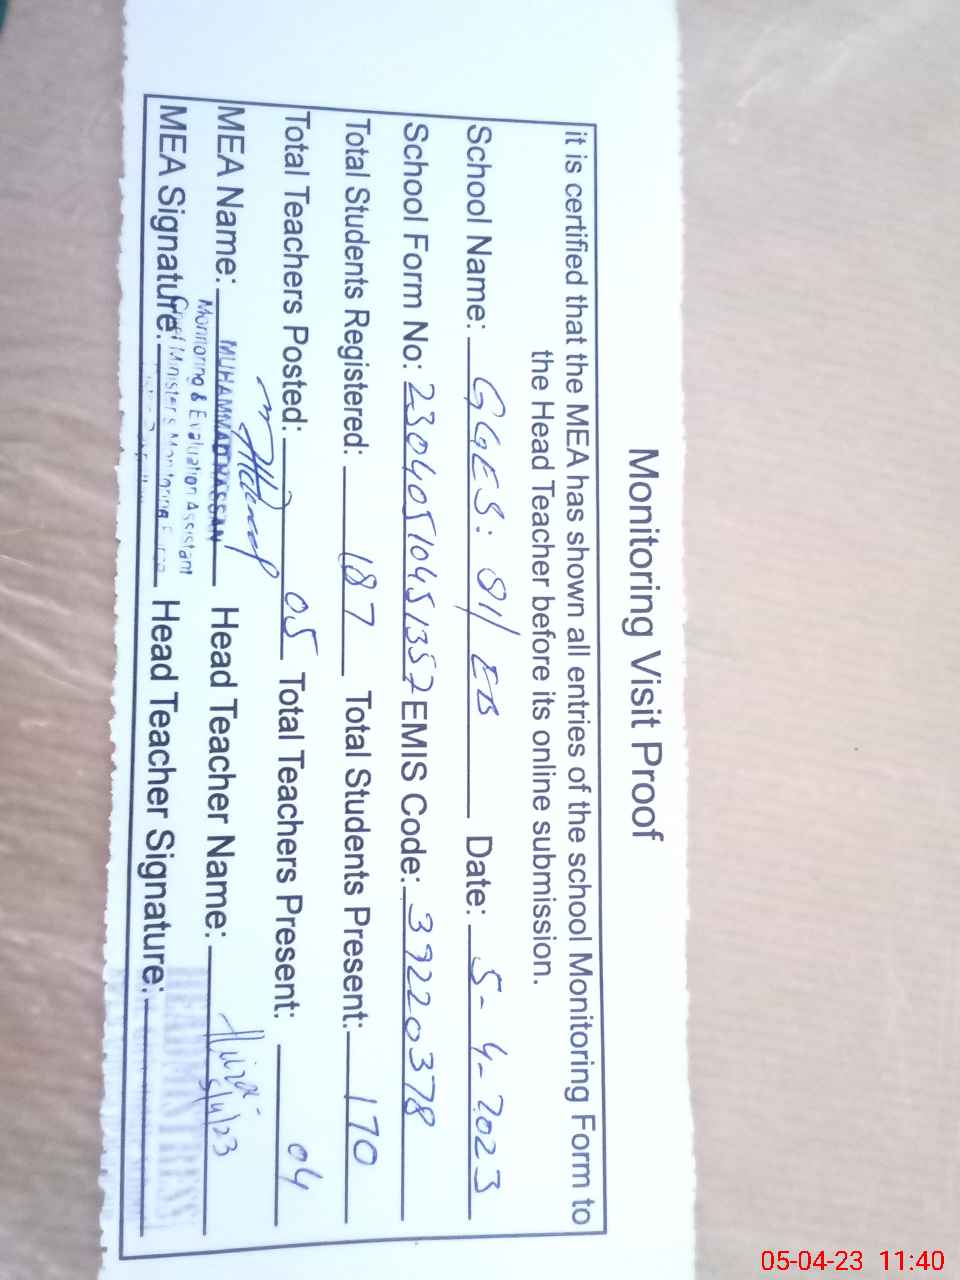 Monitoring Visit Proof
it is certified that the MEA has shown all entries of the school Monitoring Form to
the Head Teacher before its online submission.
School Name: GGES: 81/EB Date: 5-4-2023
School Form No: 23040510451357 EMIS Code: 39220378
Total Students Registered: 187 Total Students Present: 170
Total Teachers Posted: 05 Total Teachers Present: 04
MEA Name: MUHAMMAD HASSAN Head Teacher Name: 5/4/23
Monitoring & Evaluation Assistant
Chief Minister's Monitoring Force
MEA Signature: Head Teacher Signature:
HEADMISTRESS
05-04-23 11:40